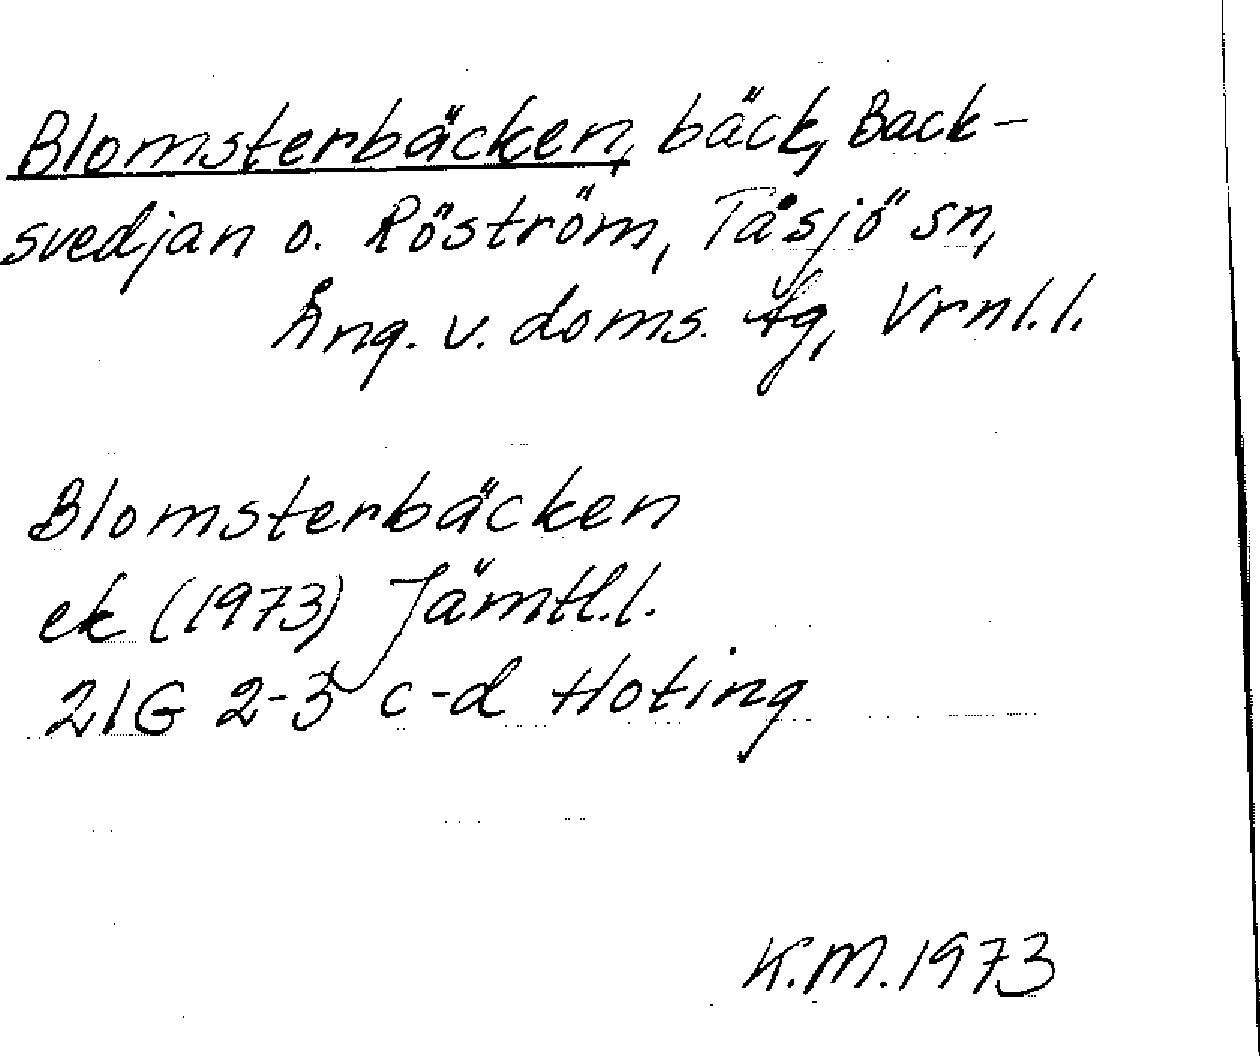 Blomsterbäcken, bäck, Back-
svedjan o. Röström, Tåsjö sn,
Ång. v. doms. tg, Vrnl.l.
Blomsterbäcken
ek (1973) Jämtl.l.
21G 2-3 c-d Hoting
K.M.1973